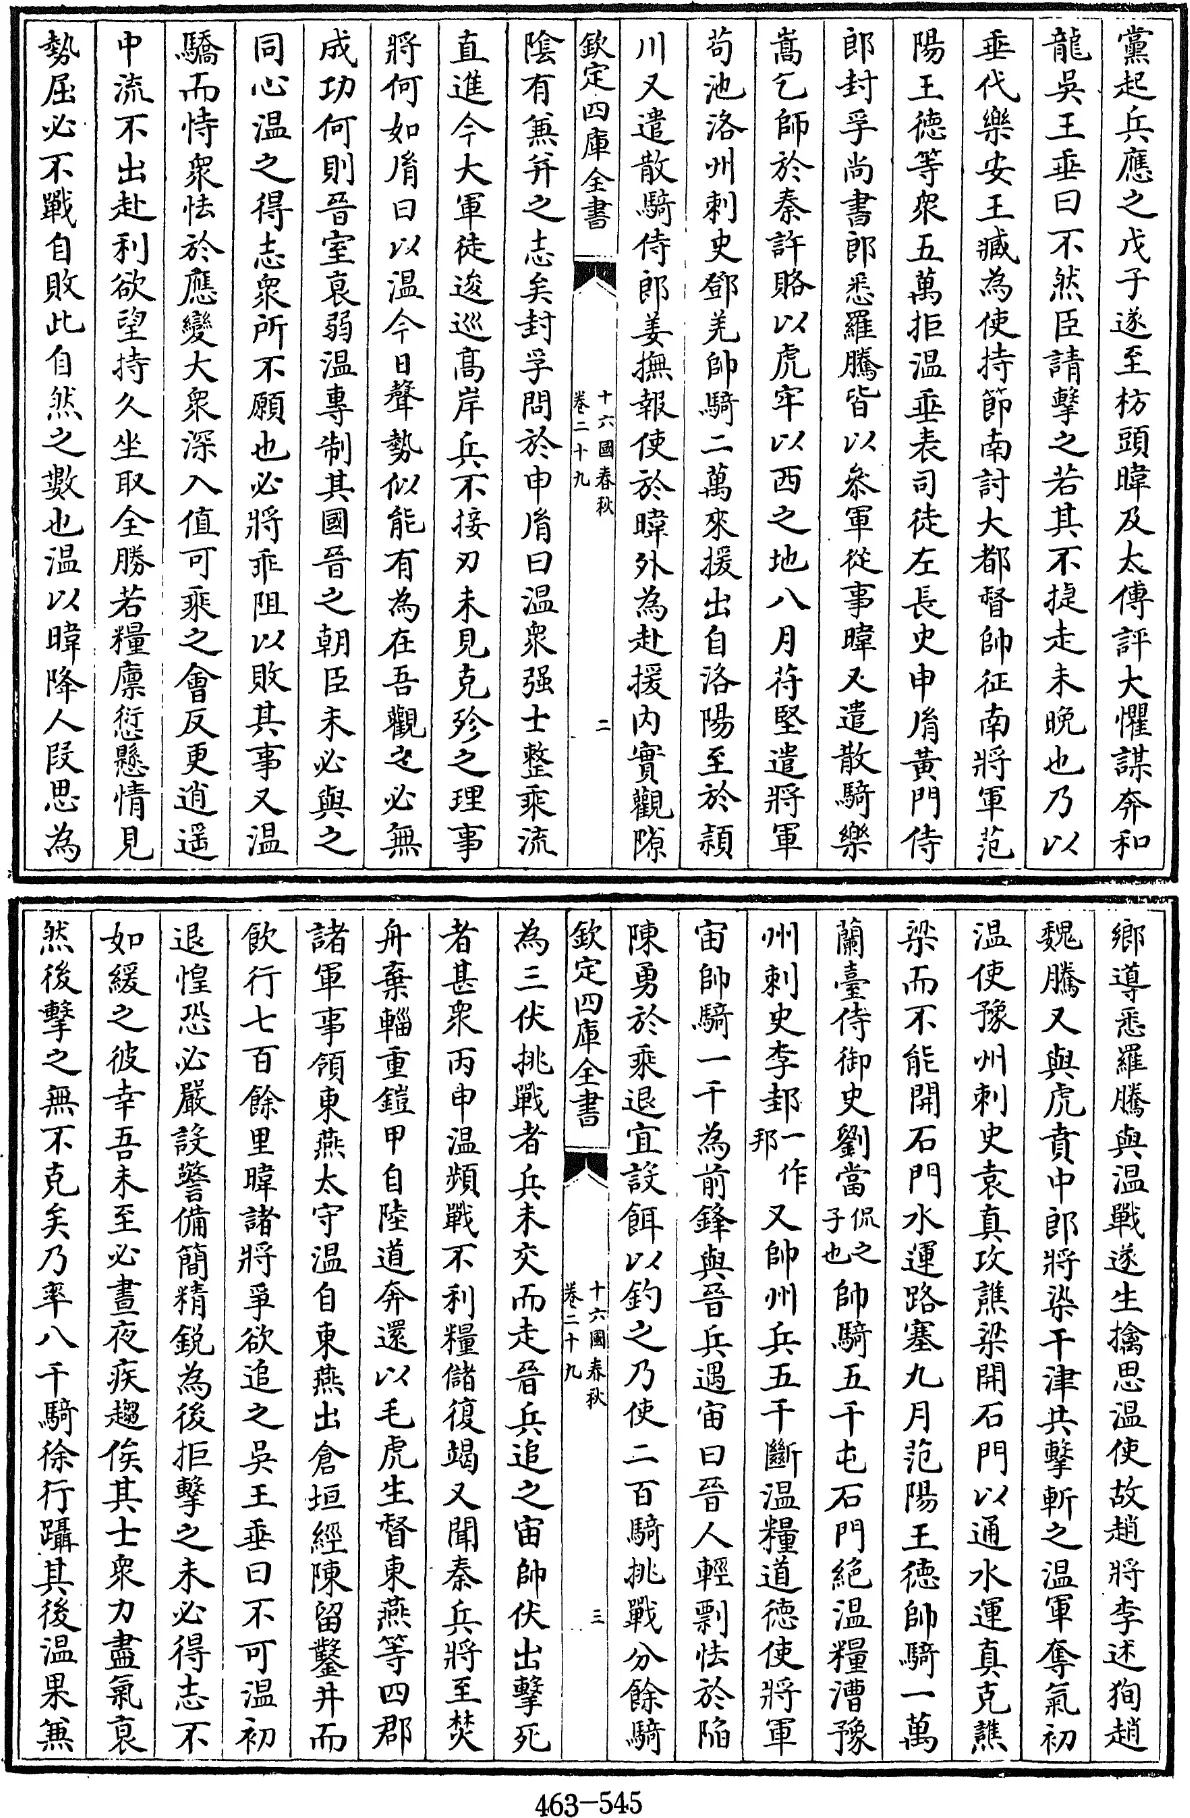 黨起兵應之戊子遂至枋頭暐及太傅評大懼謀奔和
龍吳王垂曰不然臣請擊之若其不捷走未晚也乃以
垂代樂安王臧為使持節南討大都督帥征南將軍范
陽王德等衆五萬拒溫垂表司徒左長史申胤黃門侍
郎封孚尚書郎悉羅騰皆以叅軍從事暐又遣散騎樂
嵩乞師於秦許賂以虎牢以西之地八月苻堅遣將軍
苟池洛州刺史鄧羌帥騎二萬來援出自洛陽至於潁
川又遣散騎侍郎姜撫報使於暐外為赴援内實觀隙
欽定四庫全書
十六國春秋
卷二十九
二
隂有兼并之志矣封孚問於申胤曰溫衆强士整乘流
直進今大軍徒逡巡高岸兵不接刃未見克殄之理事
將何如胤曰以溫今日聲勢似能有為在吾觀之必無
成功何則晉室衰弱溫專制其國晉之朝臣未必與之
同心溫之得志衆所不願也必將乖阻以敗其事又溫
驕而恃衆怯於應變大衆深入值可乘之會反更逍遥
中流不出赴利欲望持久坐取全勝若糧廩愆懸情見
勢屈必不戰自敗此自然之數也溫以暐降人段思為
鄉導悉羅騰與溫戰遂生擒思溫使故趙將李述狥趙
魏騰又與虎賁中郎將染干津共擊斬之溫軍奪氣初
溫使豫州刺史袁真攻譙梁開石門以通水運真克譙
梁而不能開石門水運路塞九月范陽王德帥騎一萬
蘭臺侍御史劉當侃之子也帥騎五千屯石門絕溫糧漕豫
州刺史李邽一作邦又帥州兵五千斷溫糧道德使將軍
宙帥騎一千為前鋒與晉兵遇宙曰晉人輕剽怯於陷
陳勇於乘退宜設餌以釣之乃使二百騎挑戰分餘騎
欽定四庫全書
十六國春秋
卷二十九
三
為三伏挑戰者兵未交而走晉兵追之宙帥伏出擊死
者甚衆丙申溫頻戰不利糧儲復竭又聞秦兵將至焚
舟棄輜重鎧甲自陸道奔還以毛虎生督東燕等四郡
諸軍事領東燕太守溫自東燕出倉垣經陳留鑿井而
飲行七百餘里暐諸將爭欲追之吳王垂曰不可溫初
退惶恐必嚴設警備簡精銳為後拒擊之未必得志不
如緩之彼幸吾未至必晝夜疾趨俟其士衆力盡氣衰
然後擊之無不克矣乃率八千騎徐行躡其後溫果兼
463-545